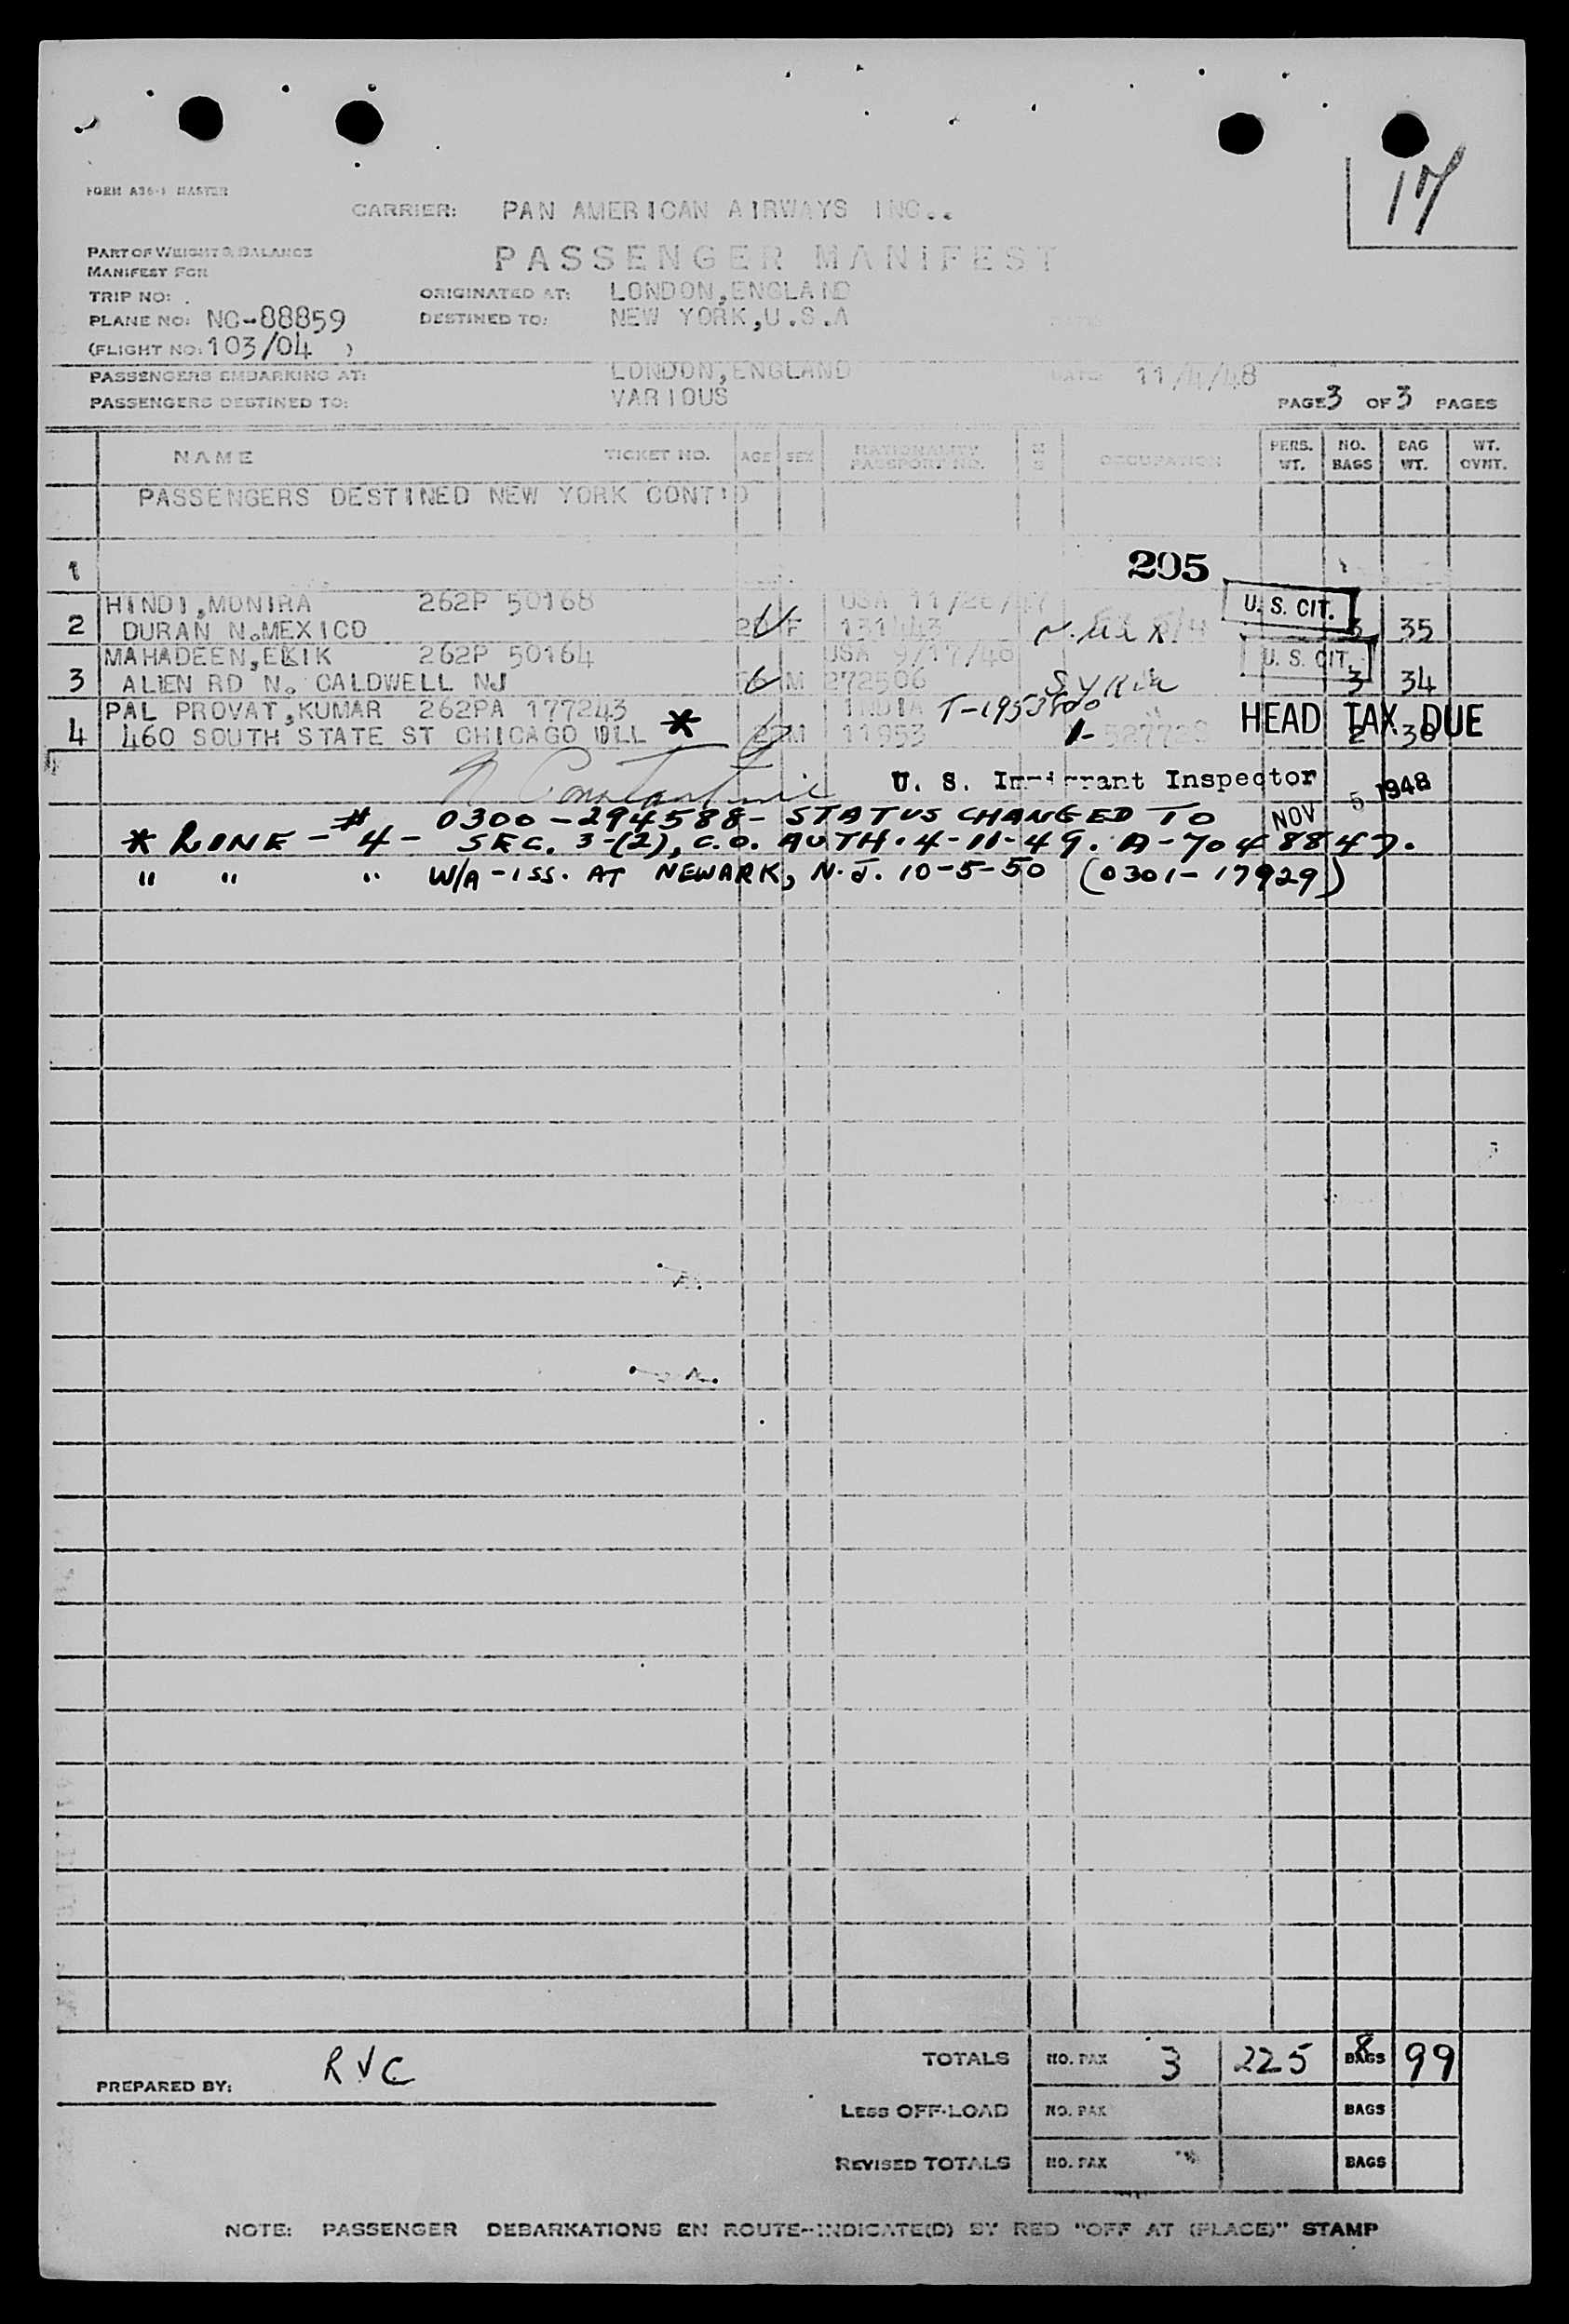 17
FORM A36-1 MASTER
CARRIER: PAN AMERICAN AIRWAYS INC..
PART OF WEIGHT & BALANCE
MANIFEST FOR
PASSENGER MANIFEST
TRIP NO: .
ORIGINATED AT: LONDON,ENGLAND
PLANE NO: NC-88859
DESTINED TO: NEW YORK,U.S.A
(FLIGHT NO: 103/04 )
PASSENGERS EMBARKING AT: LONDON,ENGLAND DATE 11/4/48
PASSENGERS DESTINED TO: VARIOUS PAGE 3 OF 3 PAGES
NAME TICKET NO. AGE SEX NATIONALITY PASSPORT NO. M S OCCUPATION PERS. WT. NO. BAGS BAG WT. WT. OVNT.
PASSENGERS DESTINED NEW YORK CONT'D
1 205
HINDI,MUNIRA 262P 50168 USA U. S. CIT.
2 DURAN N.MEXICO F 131443 N. MEX 3 35
MAHADEEN,EKIK 262P 50164 USA 9/17/46 U. S. CIT.
3 ALIEN RD N. CALDWELL NJ M 272506 SYRIA 3 34
PAL PROVAT,KUMAR 262PA 177243 INDIA T-1953800 HEAD TAX DUE
4 460 SOUTH STATE ST CHICAGO OLL * M 11953 2 30
U. S. Immigrant Inspector NOV 5 1948
0300-294588- STATUS CHANGED TO
* LINE - #4 - SEC. 3-(2), C.O. AUTH. 4-11-49. A-7048847.
" " " W/A-ISS. AT NEWARK, N.J. 10-5-50 (0301-17929)
RVC
PREPARED BY:
TOTALS NO. PAX 3 225 8 BAGS 99
LESS OFF-LOAD NO. PAX BAGS
REVISED TOTALS NO. PAX BAGS
NOTE: PASSENGER DEBARKATIONS EN ROUTE--INDICATE(D) BY RED "OFF AT (PLACE)" STAMP